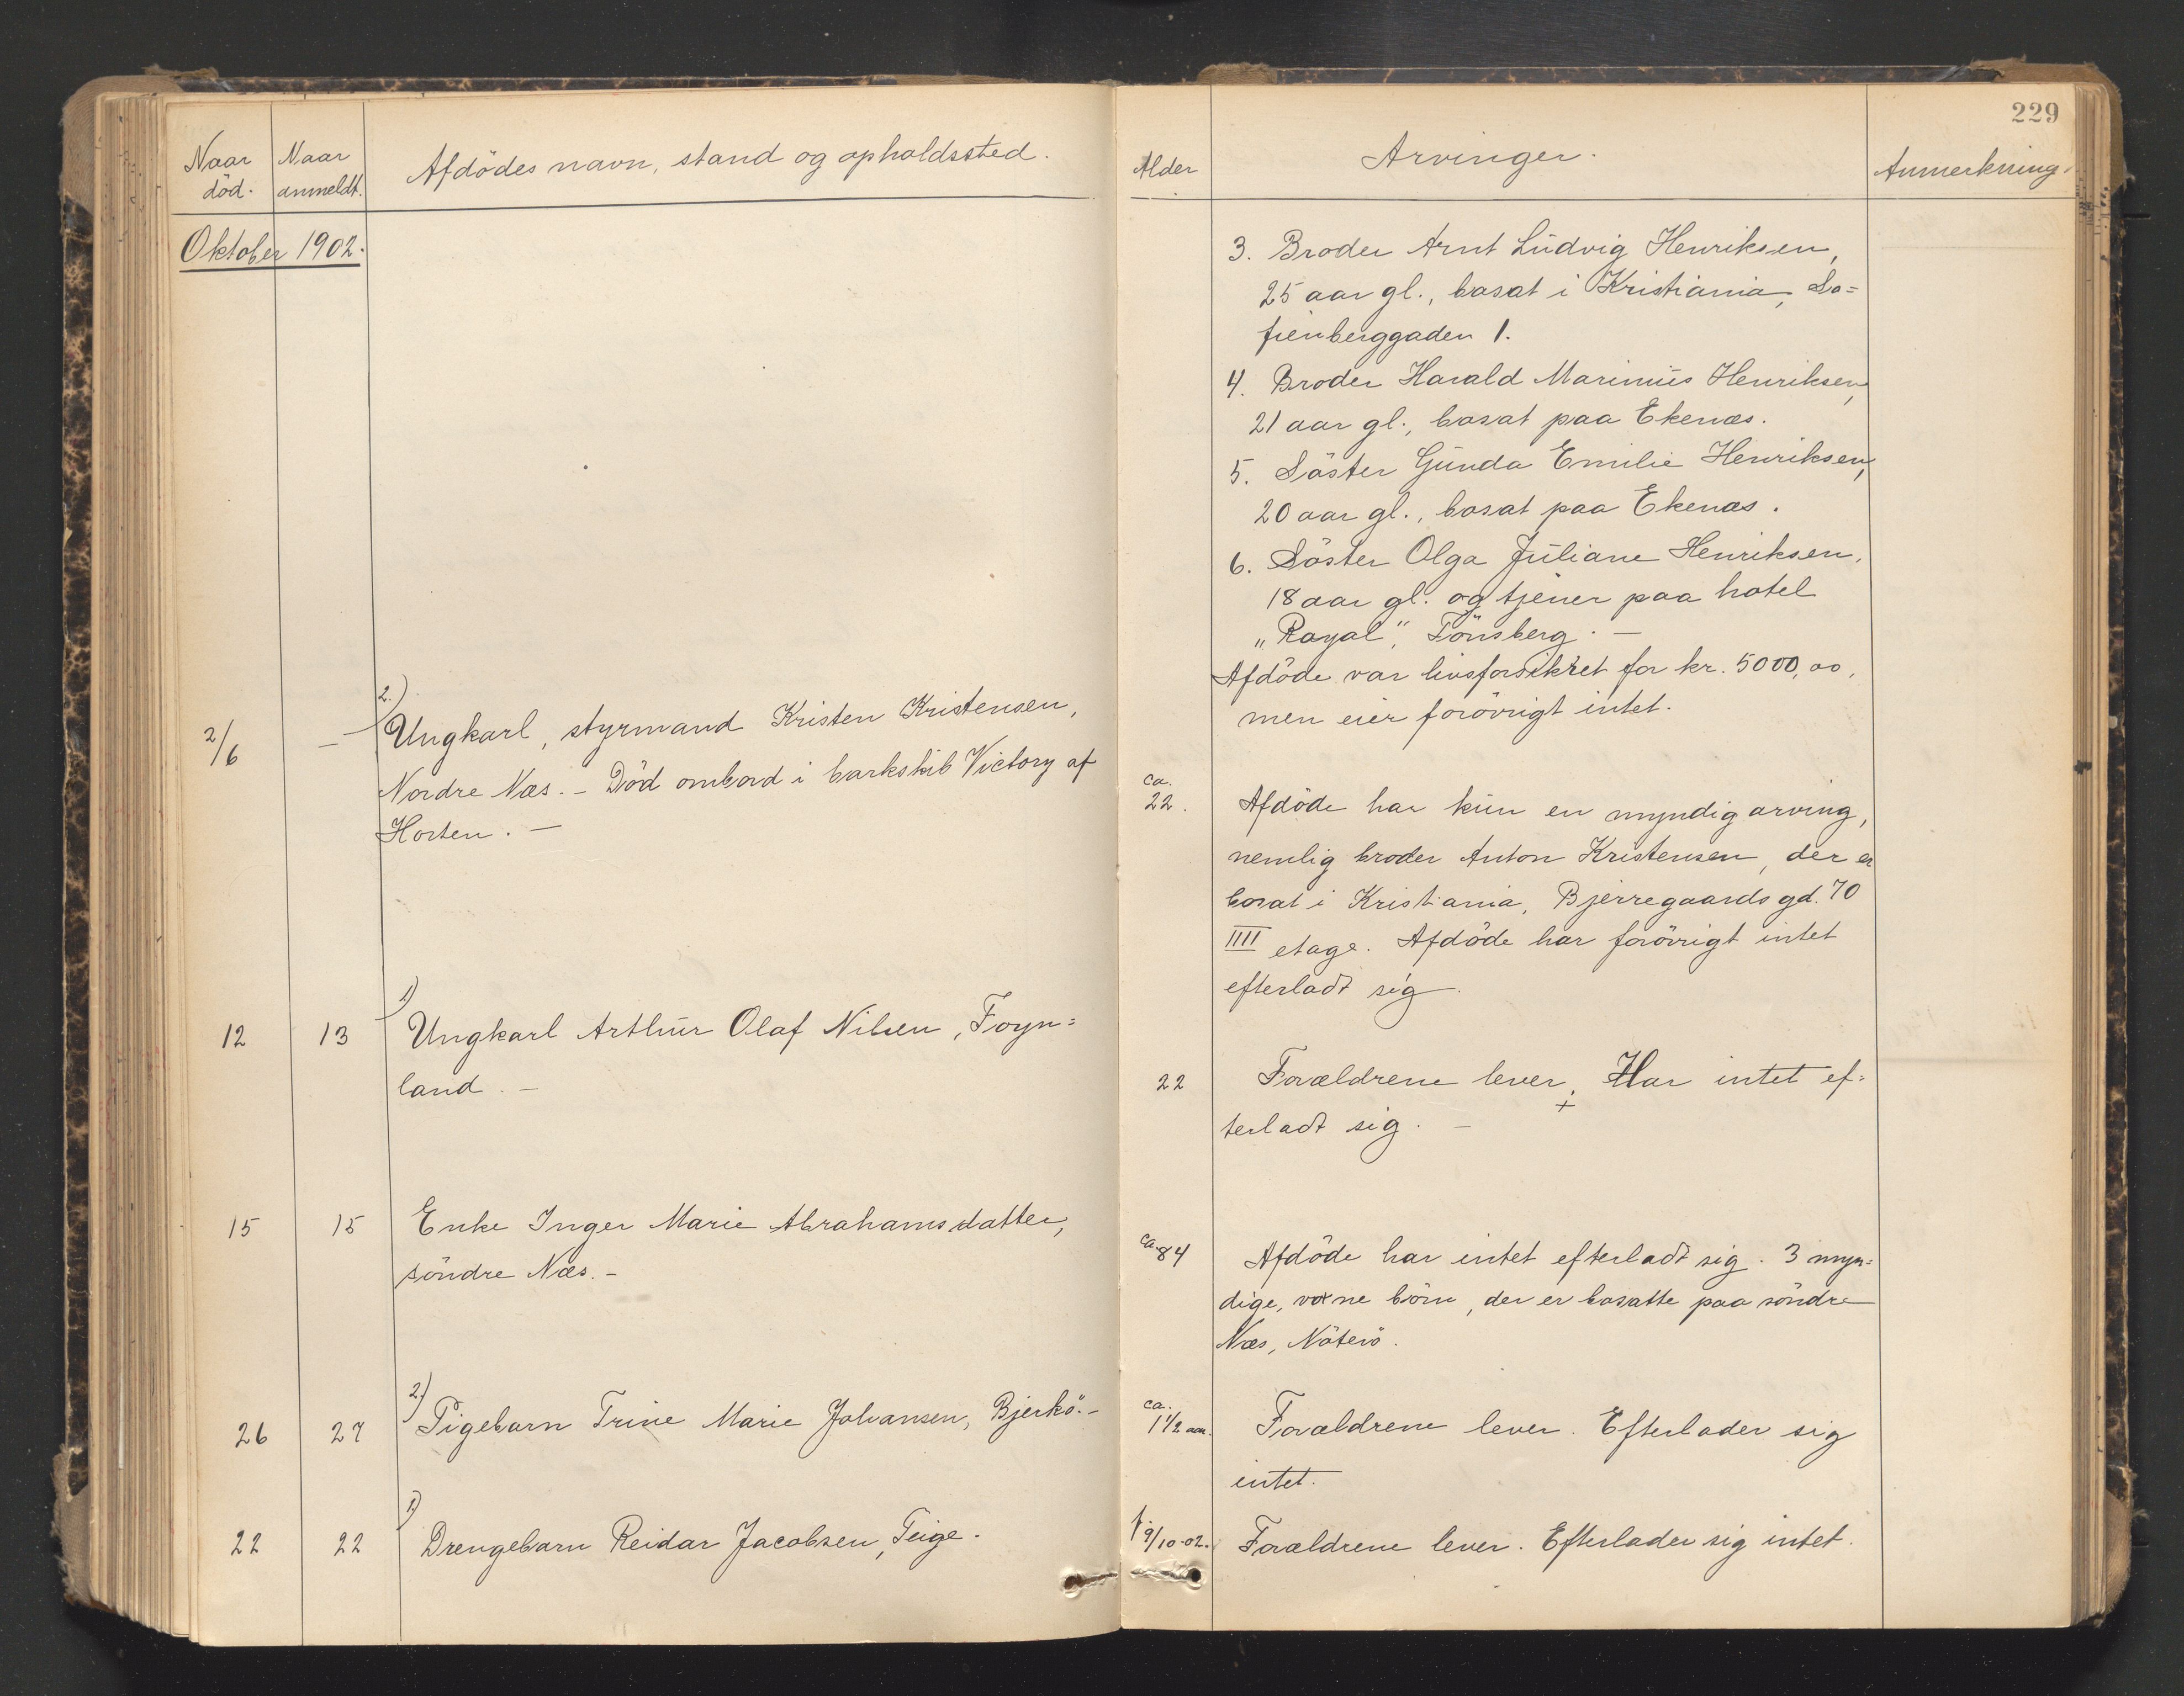 229
Naar død.
Naar anmeldt.
Afdödes navn, stand og opholdssted.
Oktober 1902.
2/6
—
2.) Ungkarl, styrmand Kristen Kristensen,
Nordre Næs. – Död ombord i barkskib Victory af
Horten. —
12
13
1) Ungkarl Arthur Olaf Nilsen, Foyn=
land. —
15
15
Enke Inger Marie Abrahamsdatter,
söndre Næs. –
26
27
2) Pigebarn Trine Marie Johansen, Bjerkö. –
22
22
1) Drengebarn Reidar Jacobsen, Teige.
Alder
Arvinger.
Anmerkning.
3. Broder Arnt Ludvig Henriksen,
25 aar gl., bosat i Kristiania, So=
fienberggaden 1.
4. Broder Harald Marinius Henriksen,
21 aar gl., bosat paa Ekenæs.
5. Söster Gunda Emilie Henriksen,
20 aar gl., bosat paa Ekenæs.
6. Söster Olga Juliane Henriksen,
18 aar gl. og tjener paa hotel
„Royal”, Tönsberg. —
Afdöde var livsforsikret for kr. 5000,00,
men eier forövrigt intet.
ca.
22.
Afdöde har kun en myndig arving,
nemlig broder Anton Kristensen, der er
bosat i Kristiania, Bjerregaards gd. 70
IIII etage. Afdöde har forövrigt intet
efterladt sig.
22
Forældrene lever. Har intet ef=
terladt sig. —
ca. 84
Afdöde har intet efterladt sig. 3 myn=
dige, voxne börn, der er bosatte paa söndre
Næs, Nöterö.
ca.
1 1/2 aar.
Forældrene lever. Efterlader sig
intet.
f. 9/10-02.
Forældrene lever. Efterlader sig intet.